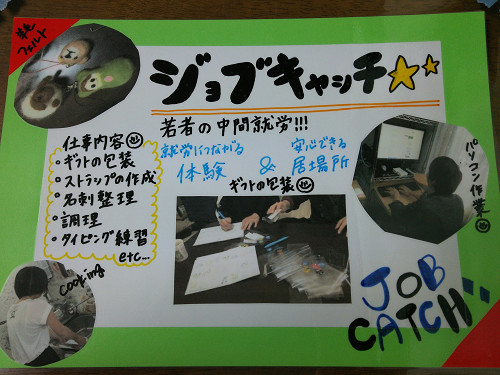 羊毛
フェルト
ジョブキャッチ
若者の中間就労!!!
就労につながる
体験
&
安心できる
居場所
仕事内容
・ギフトの包装
・ストラップの作成
・名刺整理
・調理
・タイピング練習
etc...
ギフトの包装
パソコン作業
cooking
JOB
CATCH!!